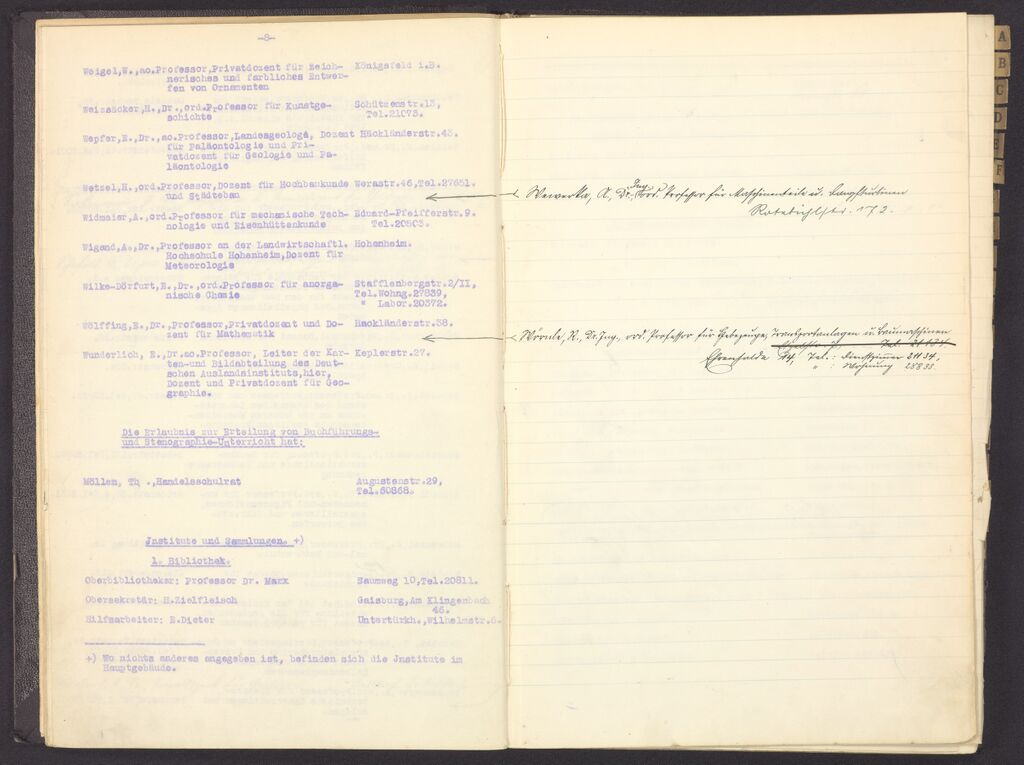 -8-
Weigel,W.,ao.Professor,Privatdozent für Zeich- Königsfeld i.B.
nerisches und farbliches Entwer-
fen von Ornamenten
Weizsäcker,H.,Dr.,ord.Professor für Kunstge- Schützenstr.13,
schichte Tel.21073.
Wepfer,E.,Dr.,ao.Professor,Landesgeologe, Dozent Hackländerstr.43.
für Paläontologie und Pri-
vatdozent für Geologie und Pa-
läontologie
Wetzel,H.,ord.Professor,Dozent für Hochbaukunde Werastr.46,Tel.27651.
und Städtebau
Widmaier,A.,ord.Professor für mechanische Tech- Eduard-Pfeifferstr.9.
nologie und Eisenhüttenkunde Tel.20503.
Wigand,A.,Dr.,Professor an der Landwirtschaftl. Hohenheim.
Hochschule Hohenheim,Dozent für
Meteorologie
Wilke-Dörfurt,E.,Dr.,ord.Professor für anorga- Stafflenbergstr.2/II,
nische Chemie Tel.Wohng.27839,
" Labor.20372.
Wölffing,E.,Dr.,Professor,Privatdozent und Do- Hackländerstr.38.
zent für Mathematik
Wunderlich, E.,Dr.ao.Professor, Leiter der Kar- Keplerstr.27.
ten-und Bildabteilung des Deut-
schen Auslandsinstituts,hier,
Dozent und Privatdozent für Geo-
graphie.
Die Erlaubnis zur Erteilung von Buchführungs-
und Stenographie-Unterricht hat:
Möllen, Th .,Handelsschulrat Augustenstr.29,
Tel.60868.
Jnstitute und Sammlungen. +)
1. Bibliothek.
Oberbibliothekar: Professor Dr. Marx Saumweg 10,Tel.20811.
Obersekretär: H.Zielfleisch Gaisburg,Am Klingenbach
46.
Hilfsarbeiter: E.Dieter Untertürkh.,Wilhelmstr.6.
+) Wo nichts anderes angegeben ist, befinden sich die Jnstitute im
Hauptgebäude.
Wewerka, A., Dr. Ing. ord. Professor für Maschinenteile u. Dampfturbinen
Rotebühlstr. 172.
Wörnle, R., Dr. Ing., ord. Professor für Hebezeuge, Transportanlagen u. Baumaschinen
Tel. 21134
Ehrenhalde 14, Tel.: Dienstzimmer 21134,
" : Wohnung 28833
A
B
C
D
E
F